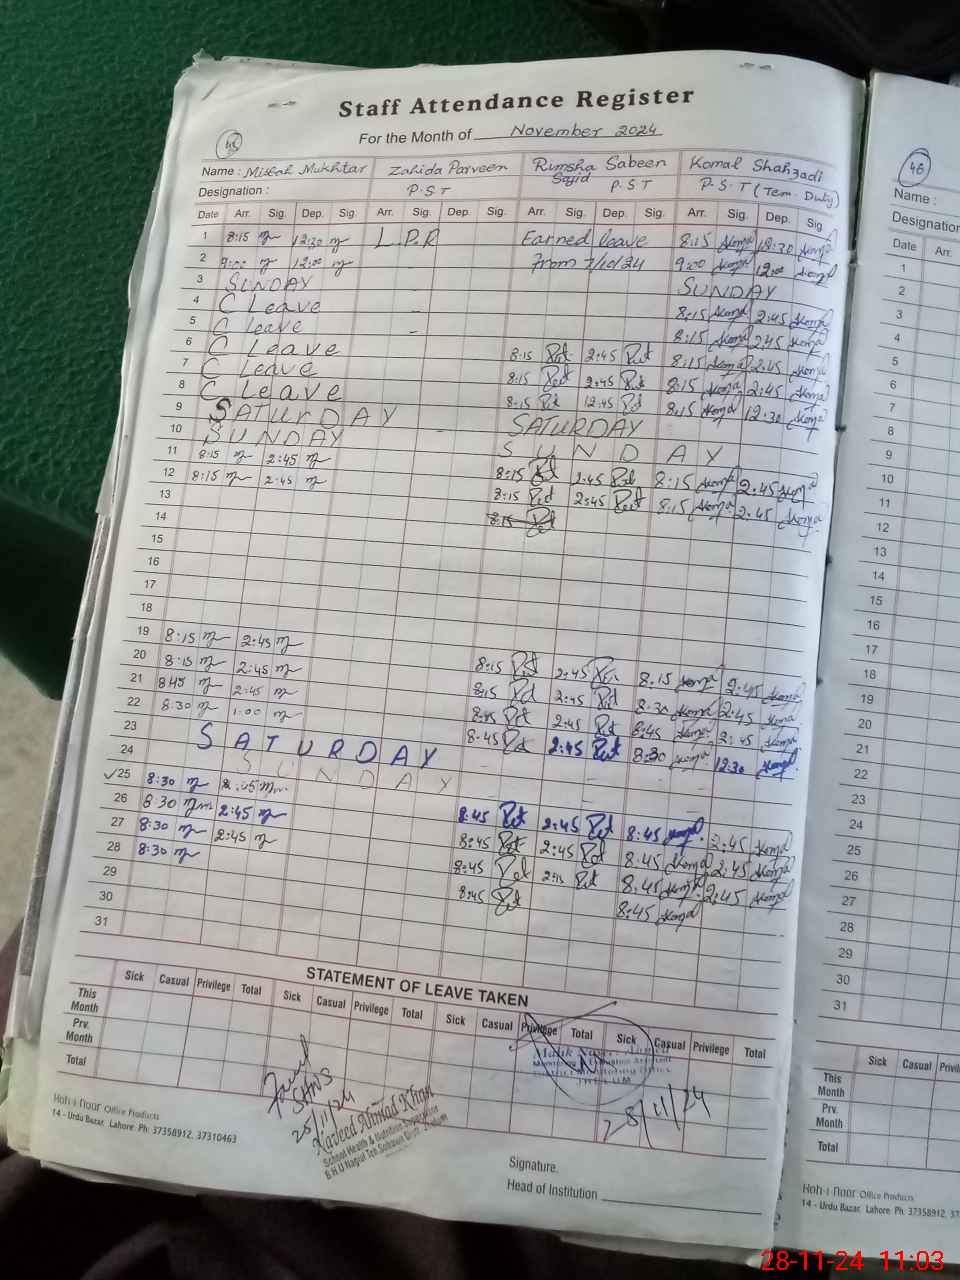 Staff Attendance Register
For the Month of November 2024
45
Name : Misbah Mukhtar Zahida Parveen Rimsha Sabeen Sajid Komal Shahzadi
Designation : P.S.T P.S.T P.S.T (Tem. Duty)
Date Arr. Sig. Dep. Sig. Arr. Sig. Dep. Sig. Arr. Sig. Dep. Sig. Arr. Sig. Dep. Sig
1 8:15 12:30 L.P.R Earned leave 8:15 Komal 12:30 Komal
2 9:00 12:00 From 7/10/24 9:00 Komal 12:00 Komal
3 SUNDAY SUNDAY
4 C Leave 8:15 Komal 2:45 Komal
5 C leave 8:15 Komal 2:45 Komal
6 C Leave 8:15 2:45 8:15 Komal 2:45 Komal
7 C Leave 8:15 2:45 8:15 Komal 2:45 Komal
8 C Leave 8:15 12:45 8:15 Komal 12:30 Komal
9 SATURDAY SATURDAY
10 SUNDAY SUNDAY
11 8:15 2:45 8:15 2:45 8:15 Komal 2:45 Komal
12 8:15 2:45 8:15 2:45 8:15 Komal 2:45 Komal
13 8:15
14
15
16
17
18
19 8:15 2:45 8:15 2:45 8:15 Komal 2:45 Komal
20 8:15 2:45 8:15 2:45 8:30 Komal 2:45 Komal
21 8:45 2:45 8:45 2:45 8:45 Komal 2:45 Komal
22 8:30 1:00 8:45 2:45 8:30 Komal 12:30 Komal
23 SATURDAY
24 SUNDAY
25 8:30 8:45 2:45 8:45 Komal 2:45 Komal
26 8:30 2:45 8:45 2:45 8:45 Komal 2:45 Komal
27 8:30 2:45 8:45 8:45 Komal 2:45 Komal
28 8:30 8:45 8:45 Komal
29
30
31
STATEMENT OF LEAVE TAKEN
Sick Casual Privilege Total Sick Casual Privilege Total Sick Casual Privilege Total Sick Casual Privilege Total
This Month
Prv. Month
Total
SHNS
25/11/24
Naveed Ahmad Khan
School Health & Nutrition Supervisor
28/11/24
Hoh-i-Noor Office Products
14 - Urdu Bazar, Lahore. Ph: 37358912, 37310463
Signature.
Head of Institution
46
Name :
Designation
Date Arr.
1
2
3
4
5
6
7
8
9
10
11
12
13
14
15
16
17
18
19
20
21
22
23
24
25
26
27
28
29
30
31
Sick Casual
This Month
Prv. Month
Total
Hoh-i-Noor Office Products
14 - Urdu Bazar, Lahore. Ph: 37358912, 37
28-11-24 11:03